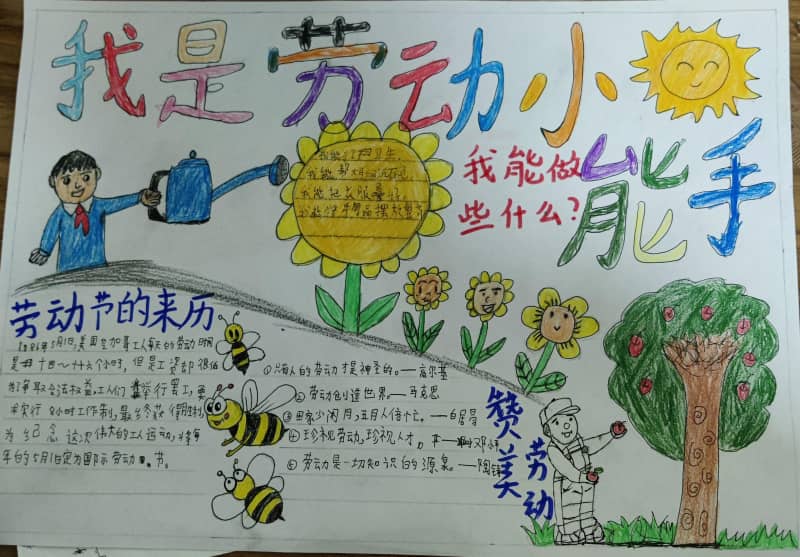 我是劳动小能手
我能做
些什么?
我能打扫卫生,
我能
我能把衣服叠好,
劳动节的来历
1886年5月1日,美国芝加哥工人每天的劳动时间
是 十四~十六个小时,但是工资却很低
为争取合法权益,工人们 举行罢工,要
求实行 8小时工作制,最终获得胜利,
为纪念这次伟大的工人运动,将每
年的5月1日定为国际劳动 节。
①只有人的劳动才是神圣的。——高尔基
②劳动创造世界。——马克思
③田家少闲月,五月人倍忙。——白居易
④珍视劳动,珍视人才, ——邓小平
⑤劳动是一切知识的源泉。——陶铸
赞美
劳动